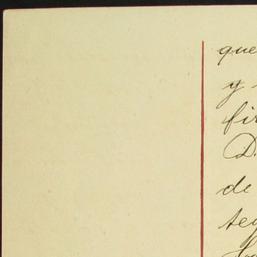 que
y
fir
D.
de
teg